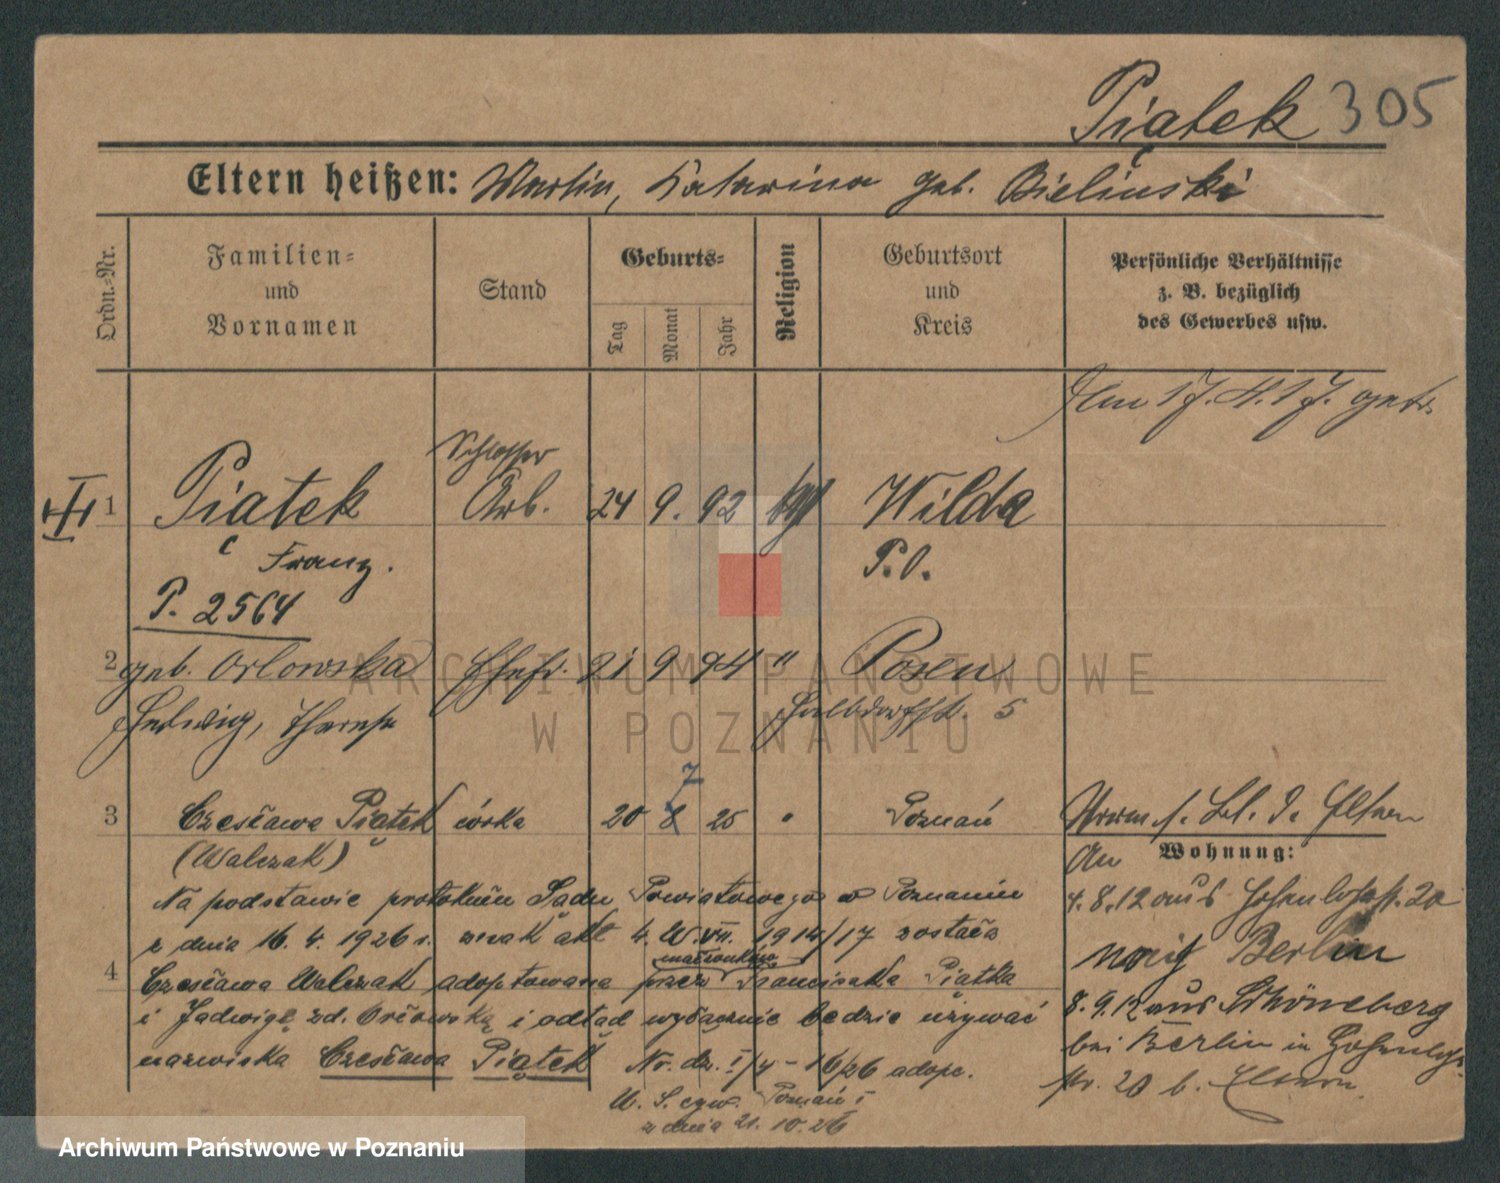 Piątek 305
Eltern heißen: Martin, Katarina geb. Bielinski
Ordn.-Nr.
Familien-
und
Vornamen
Stand
Geburts-
Tag
Monat
Jahr
Religion
Geburtsort
und
Kreis
Persönliche Verhältnisse
z. B. bezüglich
des Gewerbes usw.
Am 17.4.17. getr.
Schlosser
1 Piątek Arb. 24 9. 92 Wilda
Franz. P.O.
P. 2564
2 geb. Orlowska Ehefr. 21 9 94 " Posen
Hedwig, Therese Halbdorfstr. 5
7
3 Czesława Piątek córka 20 8 25 " Poznań
(Walczak)
Na podstawie protokółu Sądu Powiatowego w Poznaniu
z dnia 16. 4. 1926 r. znak akt 4. W. VII. 1914/17 została
małżonków
4 Czesława Walczak adoptowana przez Franciszka Piątka
i Jadwigę zd. Orłowską i odtąd wyłącznie będzie używać
nazwiska Czesława Piątek Nr. dz. I/4 - 16/26 adopc.
U. S. cyw. Poznań I
z dnia 21. 10. 26
b. d. Eltern
Wohnung:
An
4.8.12 aus Hohenlohestr. 20
nach Berlin
8.9.12 aus Schöneberg
bei Berlin in Hohenlohe
str. 20 b. Eltern
ARCHIWUM PAŃSTWOWE
W POZNANIU
Archiwum Państwowe w Poznaniu